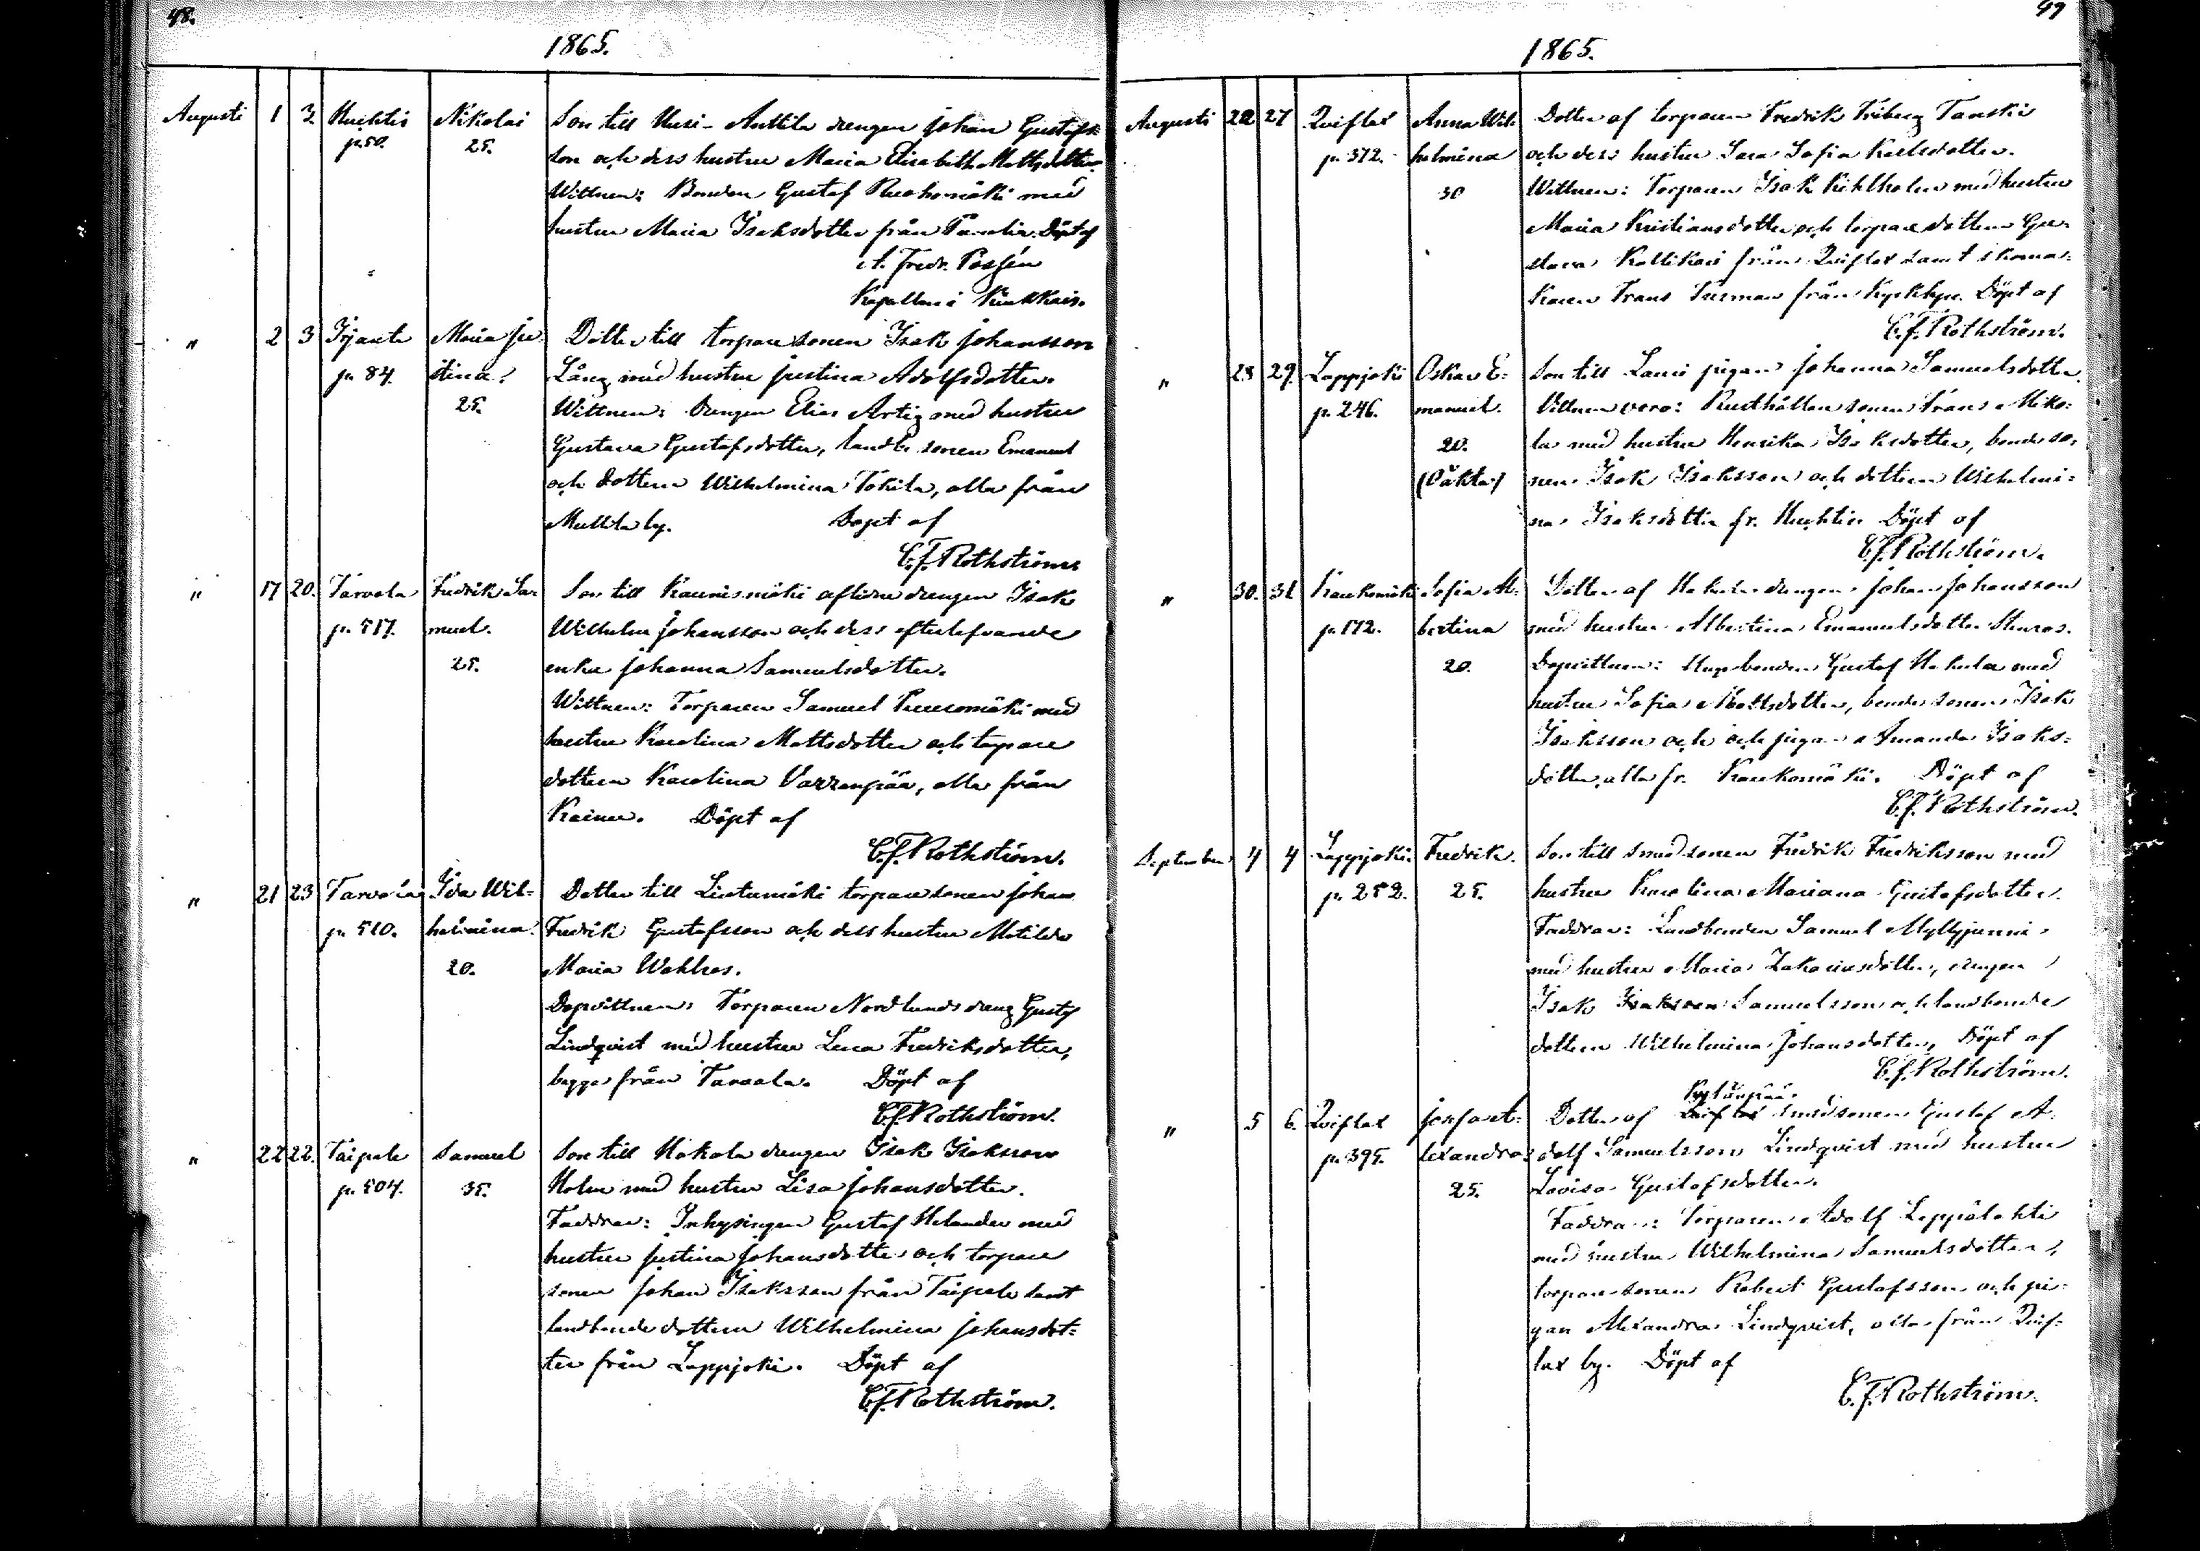 48.
1865.
Augusti 1 3. Huhtis Nikolai Son till Uusi-Anttila drengen Johan Gustafs-
p. 50. 25. son och dess hustru Maria Elisabeth Mattsdotter.
Wittnen: Bonden Gustaf Ruohomäki med
hustru Maria Isaksdotter från Panelia. Döpt af
Fredr. Possén
Kapellan i Kiukkais.
" 2 3 Irjante Maria Ju- Dotter till torparesonen Isak Johansson
p. 84. stina. Lång med hustru Justina Adolfsdotter.
25. Wittnen: Drengen Elias Artig med hustru
Gustava Gustafsdotter, landb. sonen Emanuel
och dottern Wilhelmina Tokila, alla från
Mullila by. Döpt af
C.f. Rothström
" 17 20. Tarvola Fredrik Sa- Son till Kaunismäki aflidne drengen Isak
p. 517. muel. Wilhelm Johansson och dess efterlefvande
25. enka Johanna Samuelsdotter.
Wittnen: Torparen Samuel med
hustru Karolina Mattsdotter och torpare
dottern Karolina Varrenpää, alla från
Kainu. Döpt af
C.f. Rothström.
" 21 23 Tarvola Ida Wil- Dotter till Lintumäki torparesonen Johan
p. 510. helmina. Fredrik Gustafsson och dess hustru Matilda
20. Maria Wahlros.
Dopvittnen: Torparen Nordlunds dreng Gustaf
Lindqvist med hustru Lena Fredriksdotter,
begge från Tarvola. Döpt af
C.f. Rothström.
" 22 22. Taipale Samuel Son till Hakola drengen Isak Isaksson
p. 504. 35. Holm med hustru Lisa Johansdotter.
Faddrar: Inhysingen Gustaf Helander med
hustru Justina Johansdotter och torpare
sonen Johan Isaksson från Taipale samt
landbonde dottern Wilhelmina Johansdot-
ter från Lappjoki. Döpt af
C.f. Rothström.
49
1865.
Augusti 22 27 Quiflax Anna Wil- Dotter af torparen Fredrik Friberg Tanskis
p. 372. helmina och dess hustru Sara Sofia Karlsdotter.
30 Wittnen: Torparen Isak Kihlholm med hustru
Maria Kristiansdotter och torparedottern Gu-
stava Kallikari från Quiflax samt skoma-
karen Frans Surman från Kyrkbyn. Döpt af
C.f. Rothström.
" 28 29. Lappjoki Oskar E- Son till Lauri pigan Johanna Samuelsdotter.
p. 246. manuel. Vittnen voro: Rusthållaresonen Frans Miko-
20. la med hustru Henrika Isaksdotter, bondeso-
(Oäkta) nen Isak Isaksson och dottern Wilhelmi-
na Isaksdotter fr. Huhtis Döpt af
C.f. Rothström.
" 30. 31. Kaukomäki Sofia Al- Dotter af Hakula drengen Johan Johansson
p. 172. bertina med hustru Albertina Emanuelsdotter Sturos.
20. Dopvittnen: Husbonden Gustaf Hakula med
hustru Sofia Mattsdotter, bonde sonen Isak
Isaksson och och pigan Amanda Isaks-
dotter, alla fr. Kaukomäki. Döpt af
C.f. Rothström.
September 4 4 Lappjoki. Fredrik. Son till smedsonen Fredrik Fredriksson med
p. 252. 25. hustru Karolina Mariana Gustafsdotter.
Faddrar: Landbonden Samuel Myllyjunni
med hustru Maria Zakariasdotter, drengen
Isak Isaksson Samuelsson och landbonde
dottern Wilhelmina Johansdotter. Döpt af
C.f. Rothström.
Kylänpää.
" 5 6. Quiflax Josefa A- Dotter af Quiflax smedsonen Gustaf A-
p. 395. lexandra dolf Samuelsson Lindqvist med hustru
25. Lovisa Gustafsdotter.
Faddrar: Torparen Adolf Leppälahti
med hustru Wilhelmina Samuelsdotter,
torparesonen Robert Gustafsson och pi-
gan Alexandra Lindqvist, alla från Quif-
lax by. Döpt af
C.f. Rothström.